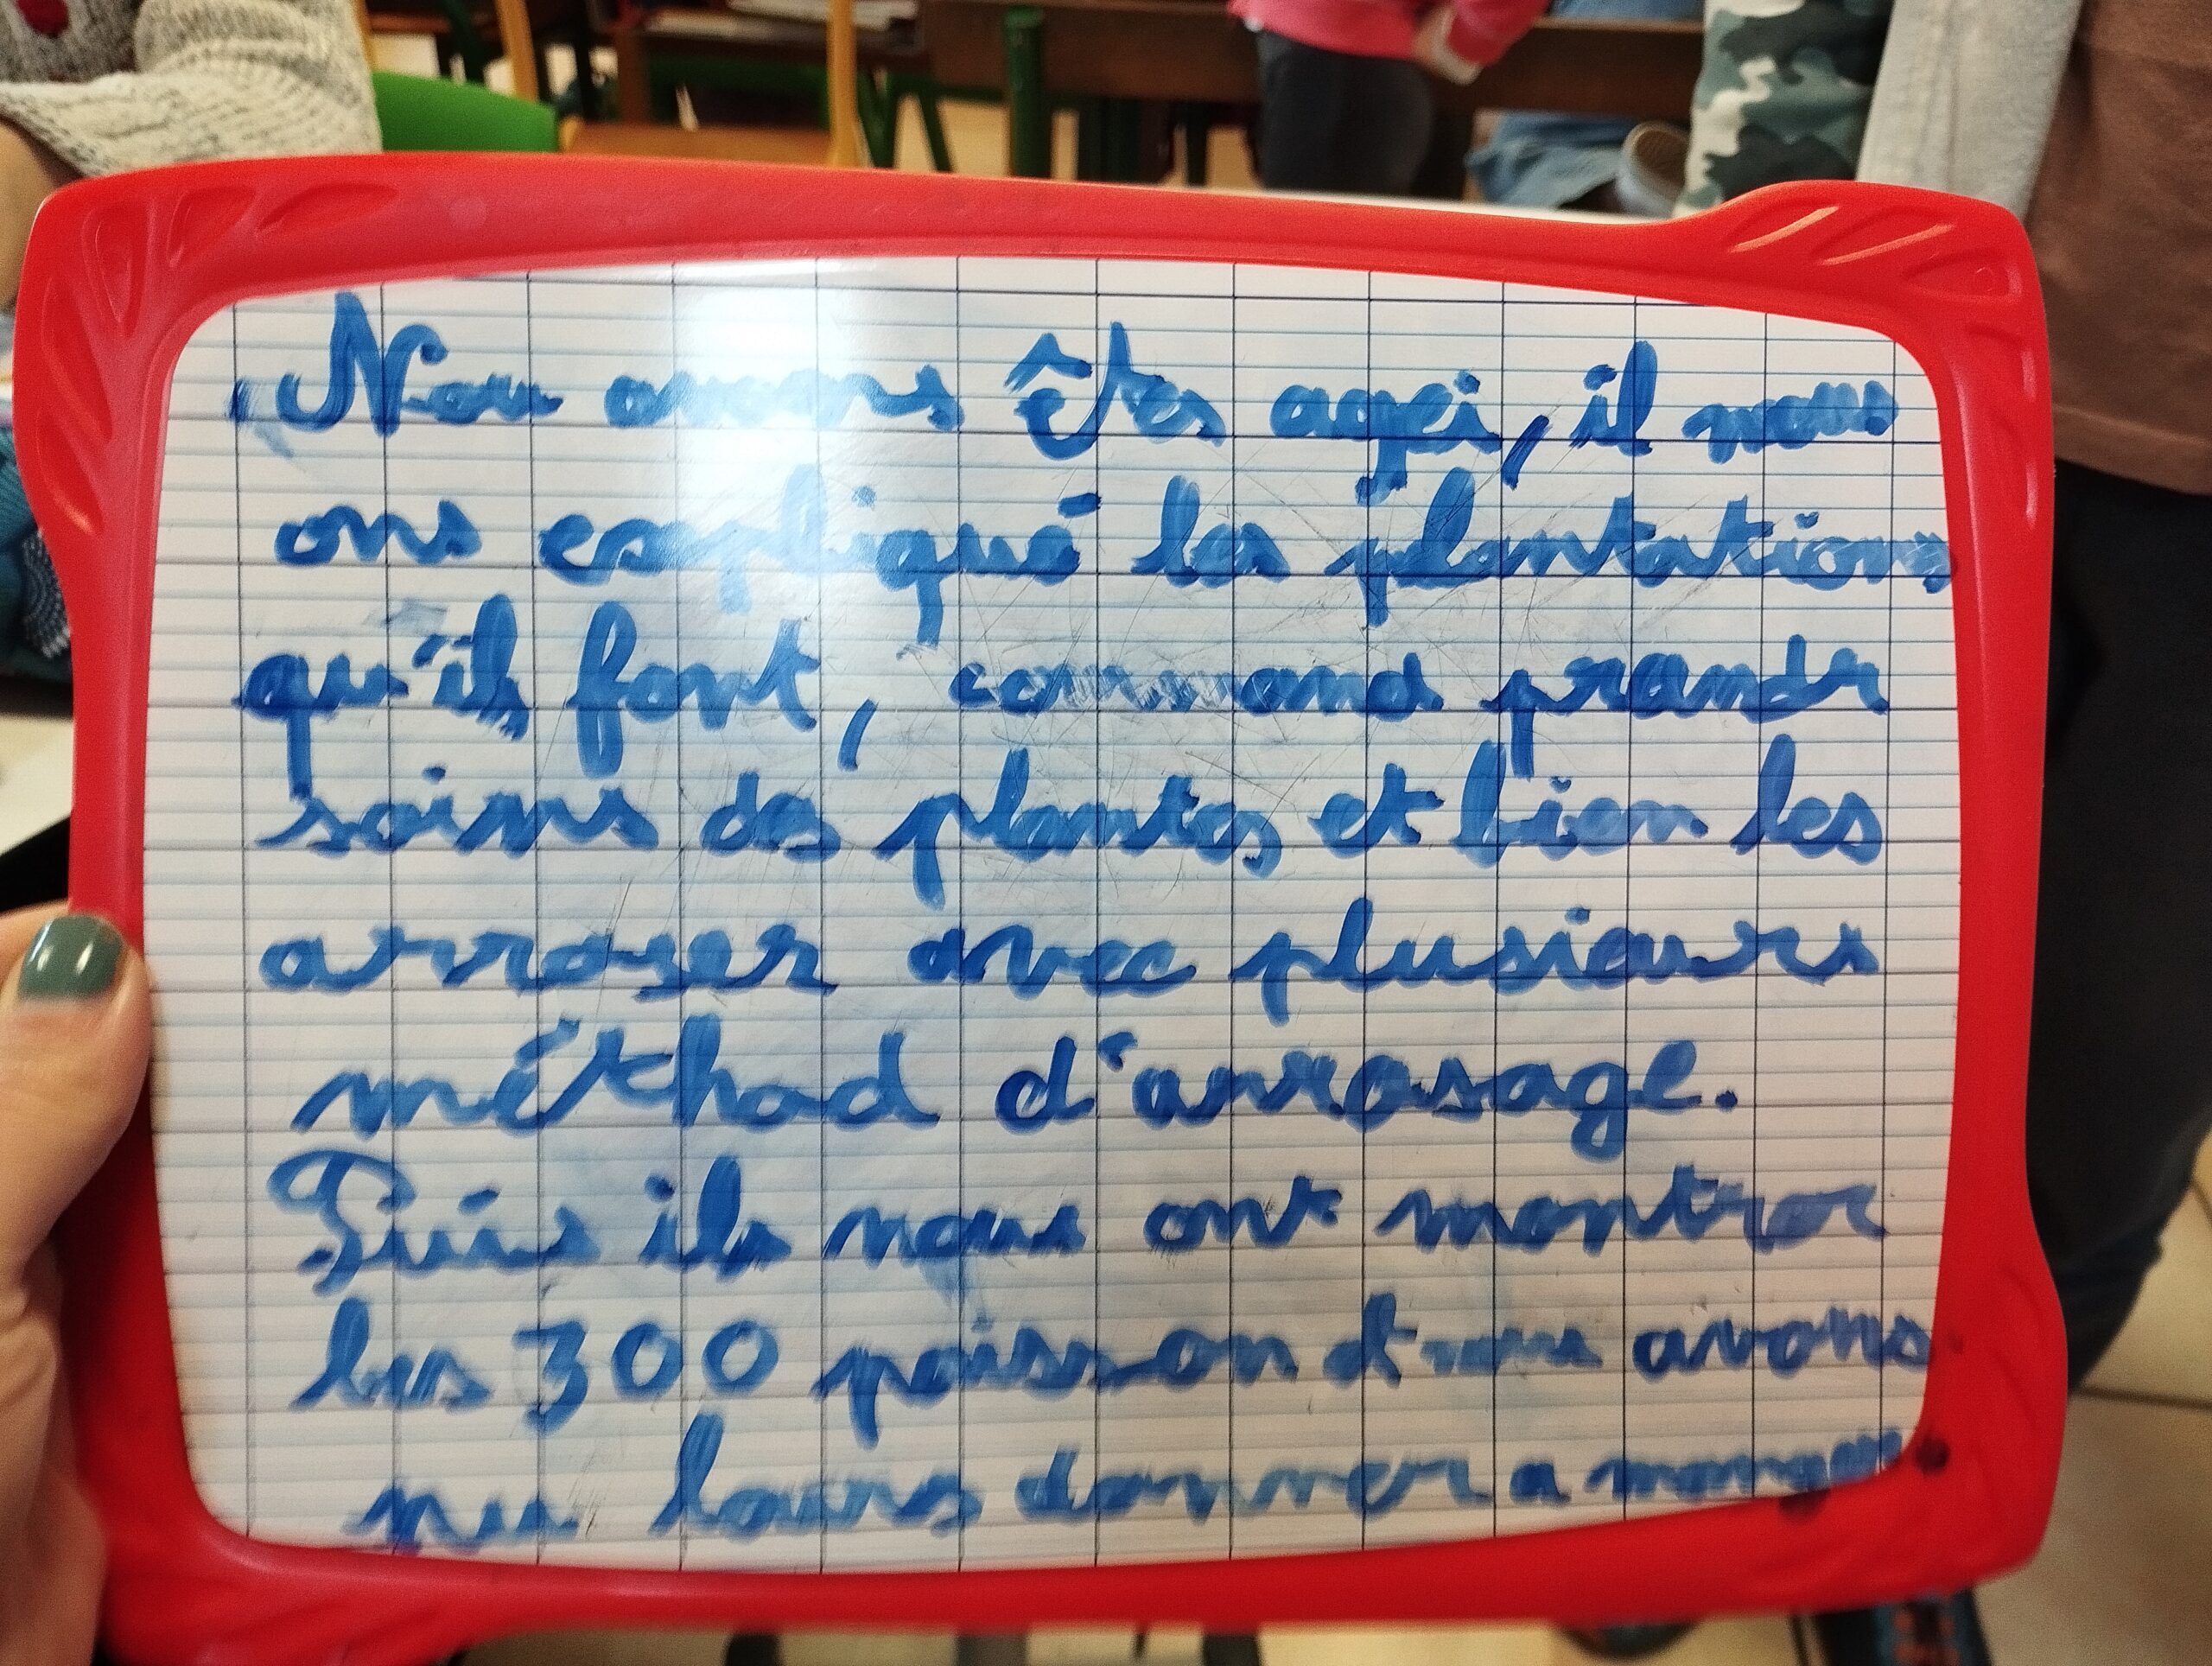 Nou avons êtes agei, il nous
ons expliqué les plantations
qu'ils font, commend prandr
soins des plantes et bien les
arroser avec plusieurs
méthod d'arrosage.
Puis ils nous ont montrer
les 300 poisson et nous avons
pu leurs donner a manger